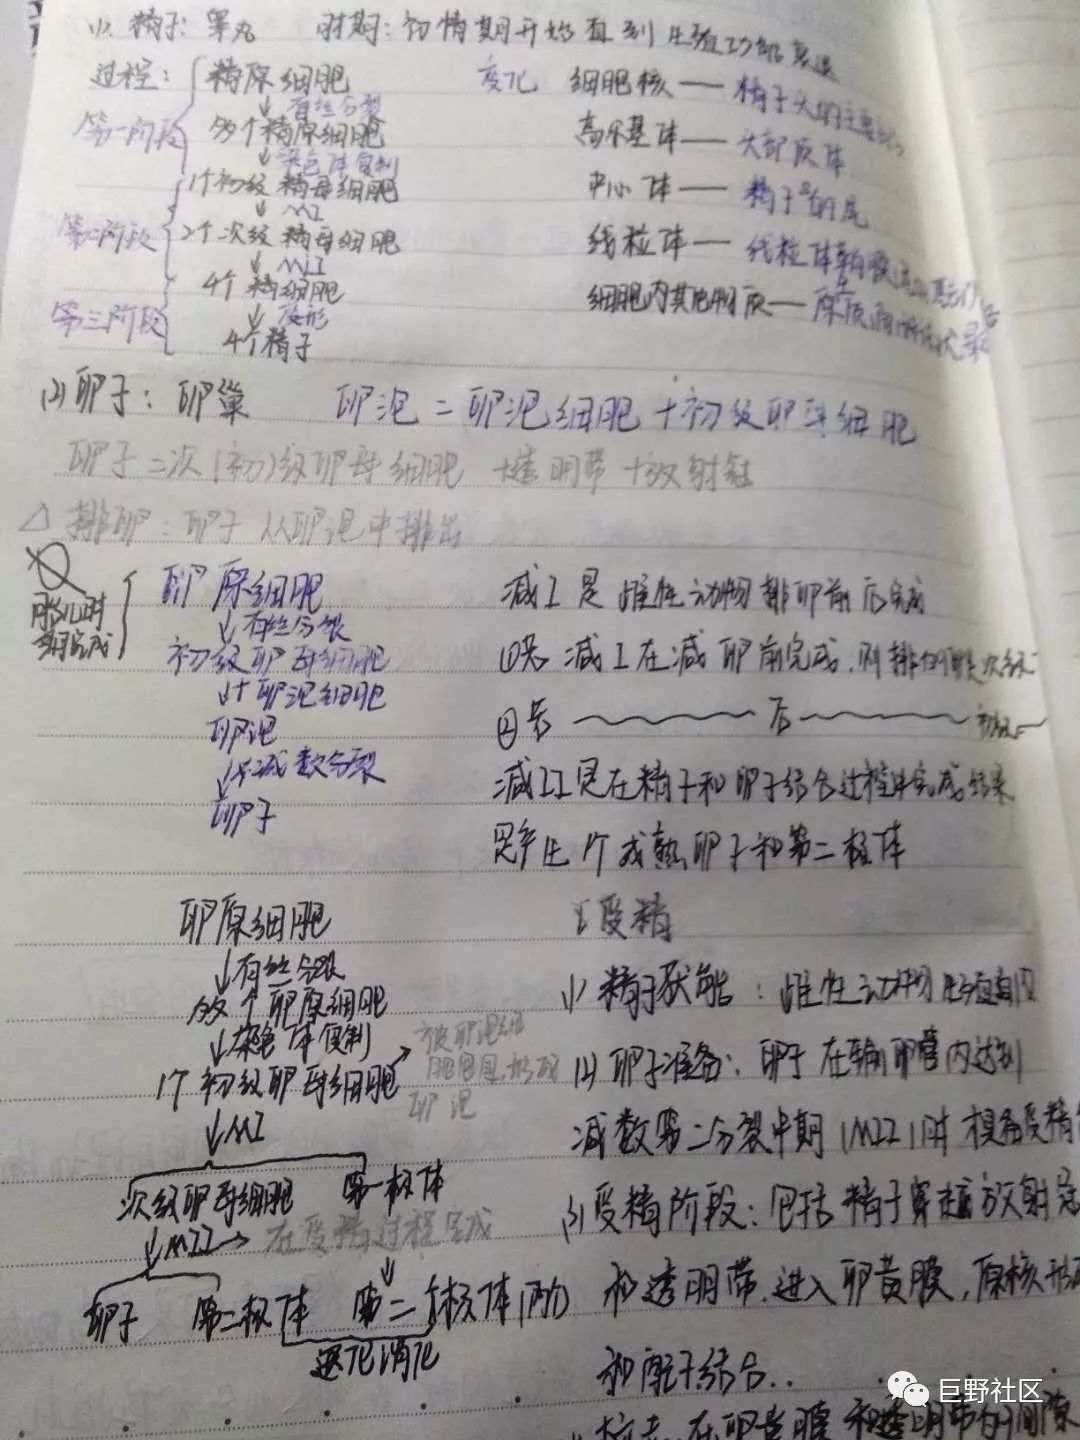 (1) 精子: 睾丸 时期: 初情期开始直到生殖功能衰退
过程: 精原细胞 变化 细胞核 — 精子头的主要
↓有丝分裂
第一阶段 多个精原细胞 高尔基体 — 头部顶体
↓染色体复制
1个初级精母细胞 中心体 — 精子的尾
↓MI
第二阶段 2个次级精母细胞 线粒体 — 线粒体鞘
↓MII
4个精细胞 细胞内其他物质 — 原生质滴
第三阶段 ↓变形
4个精子
(2) 卵子: 卵巢 卵泡 = 卵泡细胞 + 初级卵母细胞
卵子 = 次(初)级卵母细胞 + 透明带 + 放射冠
△ 排卵: 卵子从卵泡中排出
胎儿时期完成
卵原细胞 减I是雌性动物排卵前后完成
↓有丝分裂
初级卵母细胞 ①若减I在减卵前完成,则排的是次级
↓+卵泡细胞
卵泡 ②若 后 初级
↓减数分裂 减II是在精子和卵子结合过程中完成结果
卵子
是产生1个成熟卵子和第二极体
卵原细胞 受精
↓有丝分裂
多个卵原细胞 (1) 精子获能: 雌性动物生殖道内
↓染色体复制
1个初级卵母细胞 → 被卵泡细胞包围形成卵泡 (2) 卵子准备: 卵子在输卵管内达到
↓MI 减数第二分裂中期(MII)时 具备受精
次级卵母细胞 第一极体
↓MII → 在受精过程完成 (3) 受精阶段: 包括精子穿越放射冠
卵子 第二极体 第二极体(两个) 和透明带,进入卵黄膜,原核形成
退化消化
和配子结合..
标志:在卵黄膜和透明带的间隙
巨野社区